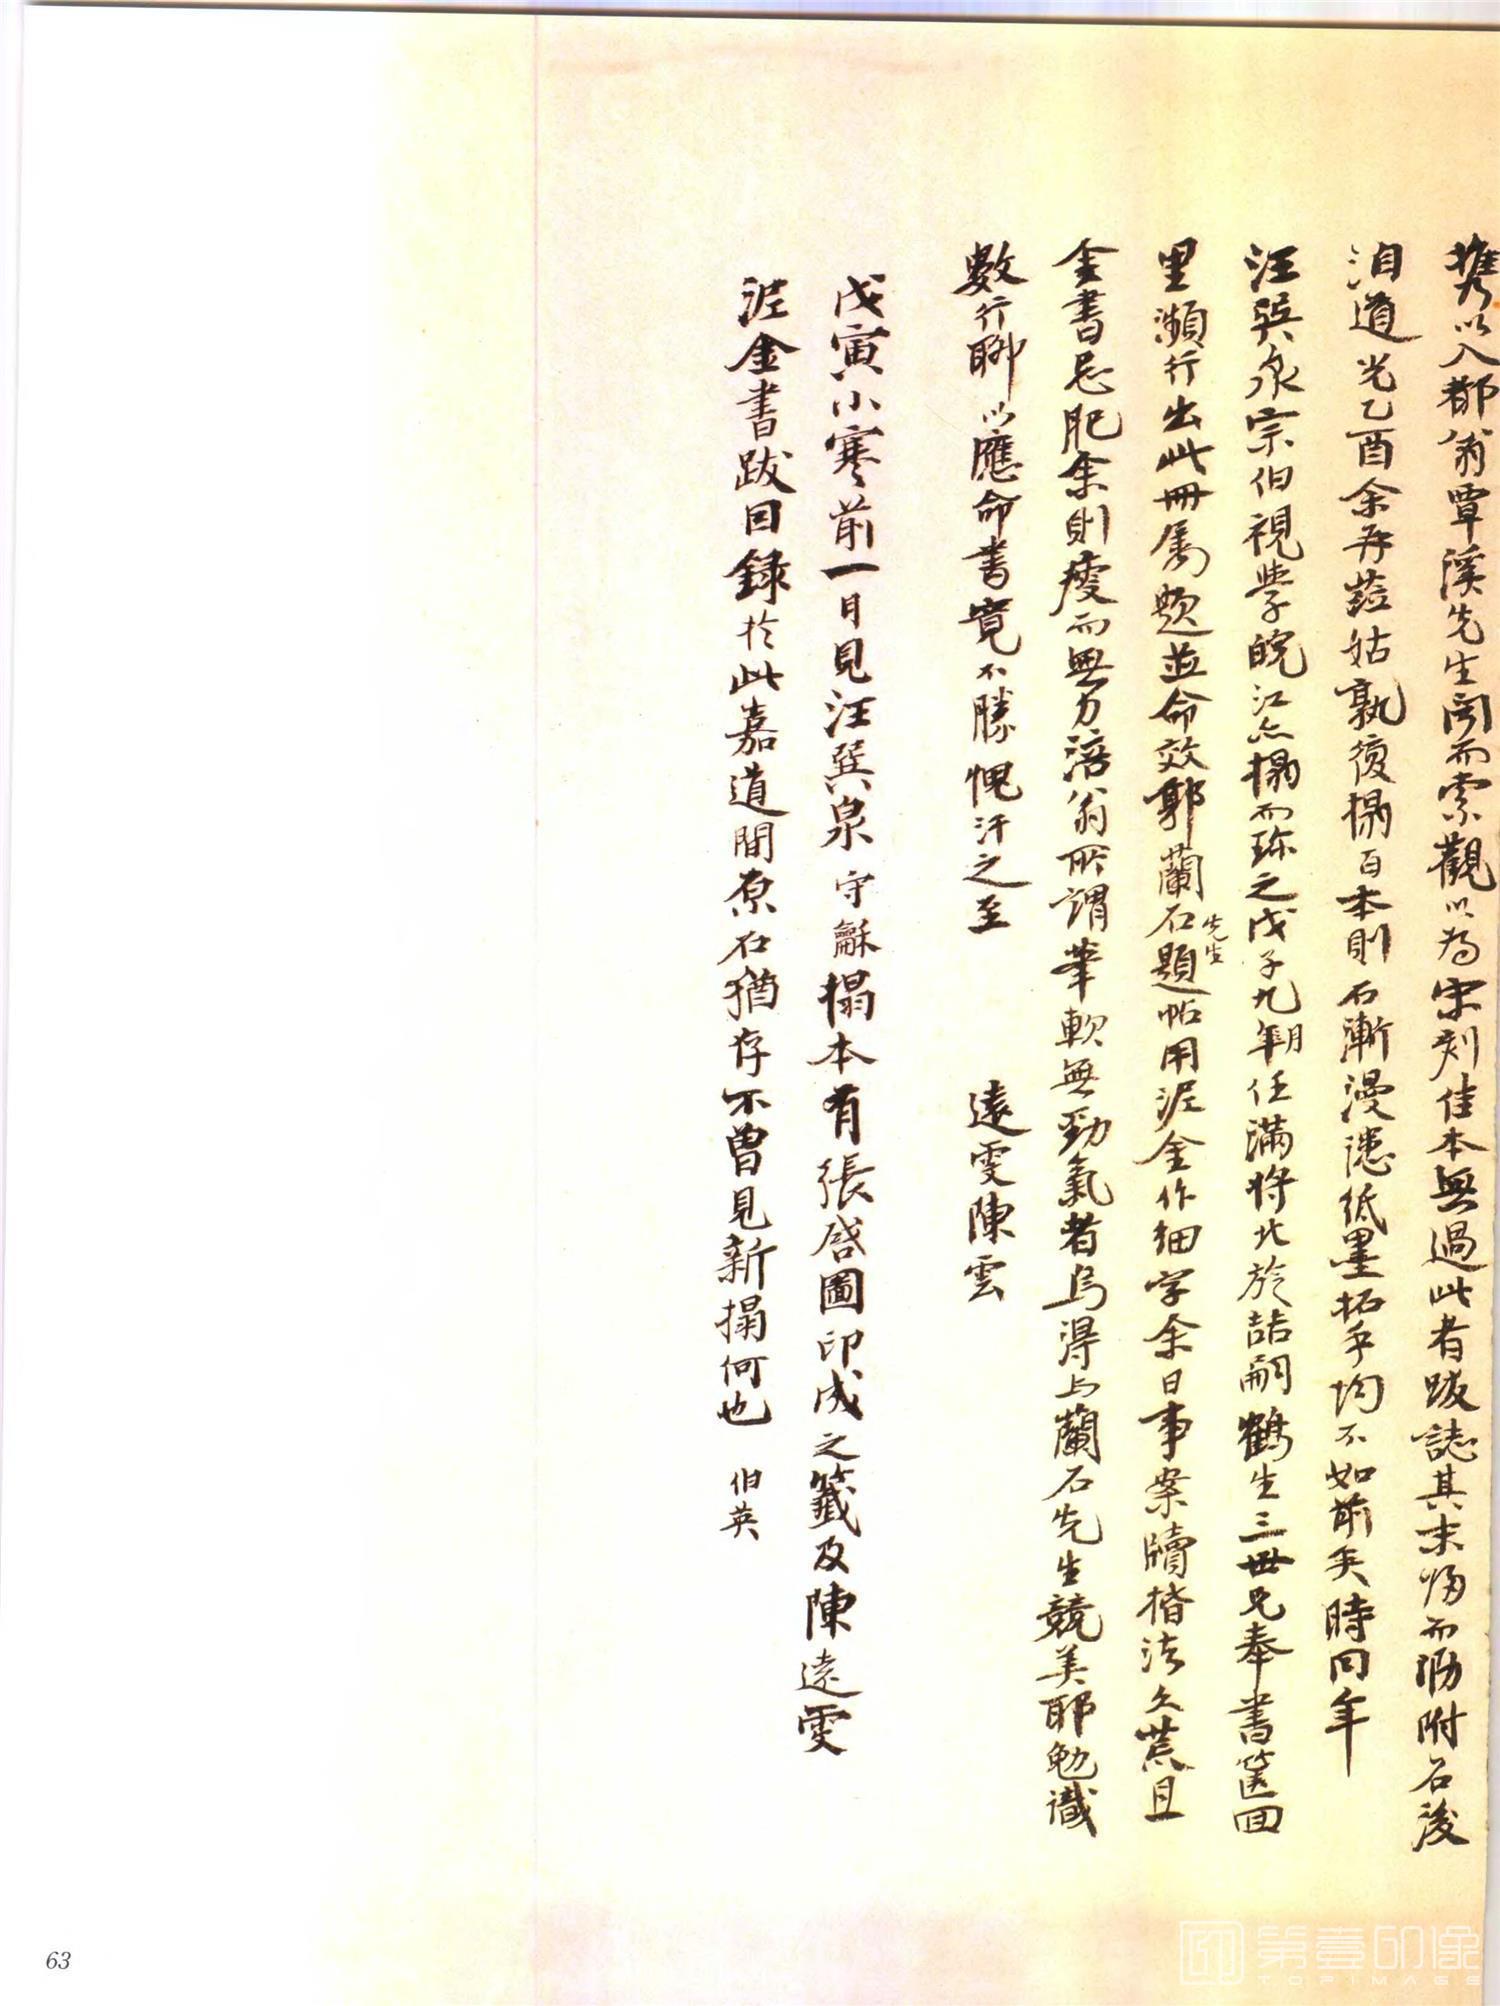 攜以入都翁覃溪先生閱而索觀以為宋刻佳本無過此者跋誌其末歸而泐附石後
洎道光乙酉余再蒞姑孰復搨百本則石漸漫漶紙墨拓手均不如前矣時同年
汪巽泉宗伯視學皖江亦搨而珍之戊子九月年任滿將北旋喆嗣鶴生三世兄奉書篋回
里瀕行出此冊屬題並命效郭蘭石先生題帖用泥金作細字余日事案牘楷法久荒且
金書忌肥余則瘦而無力涪翁所謂筆軟無勁氣者烏得与蘭石先生競美耶勉識
數行聊以應命書竟不勝愧汗之至 遠雯陳雲
戊寅小寒前一日見汪巽泉守龢搨本有張啓圖印成之籤及陳遠雯
泥金書跋因錄於此嘉道間原石猶存不曾見新搨何也 伯英
63
第壹印像
TOPIMAGE